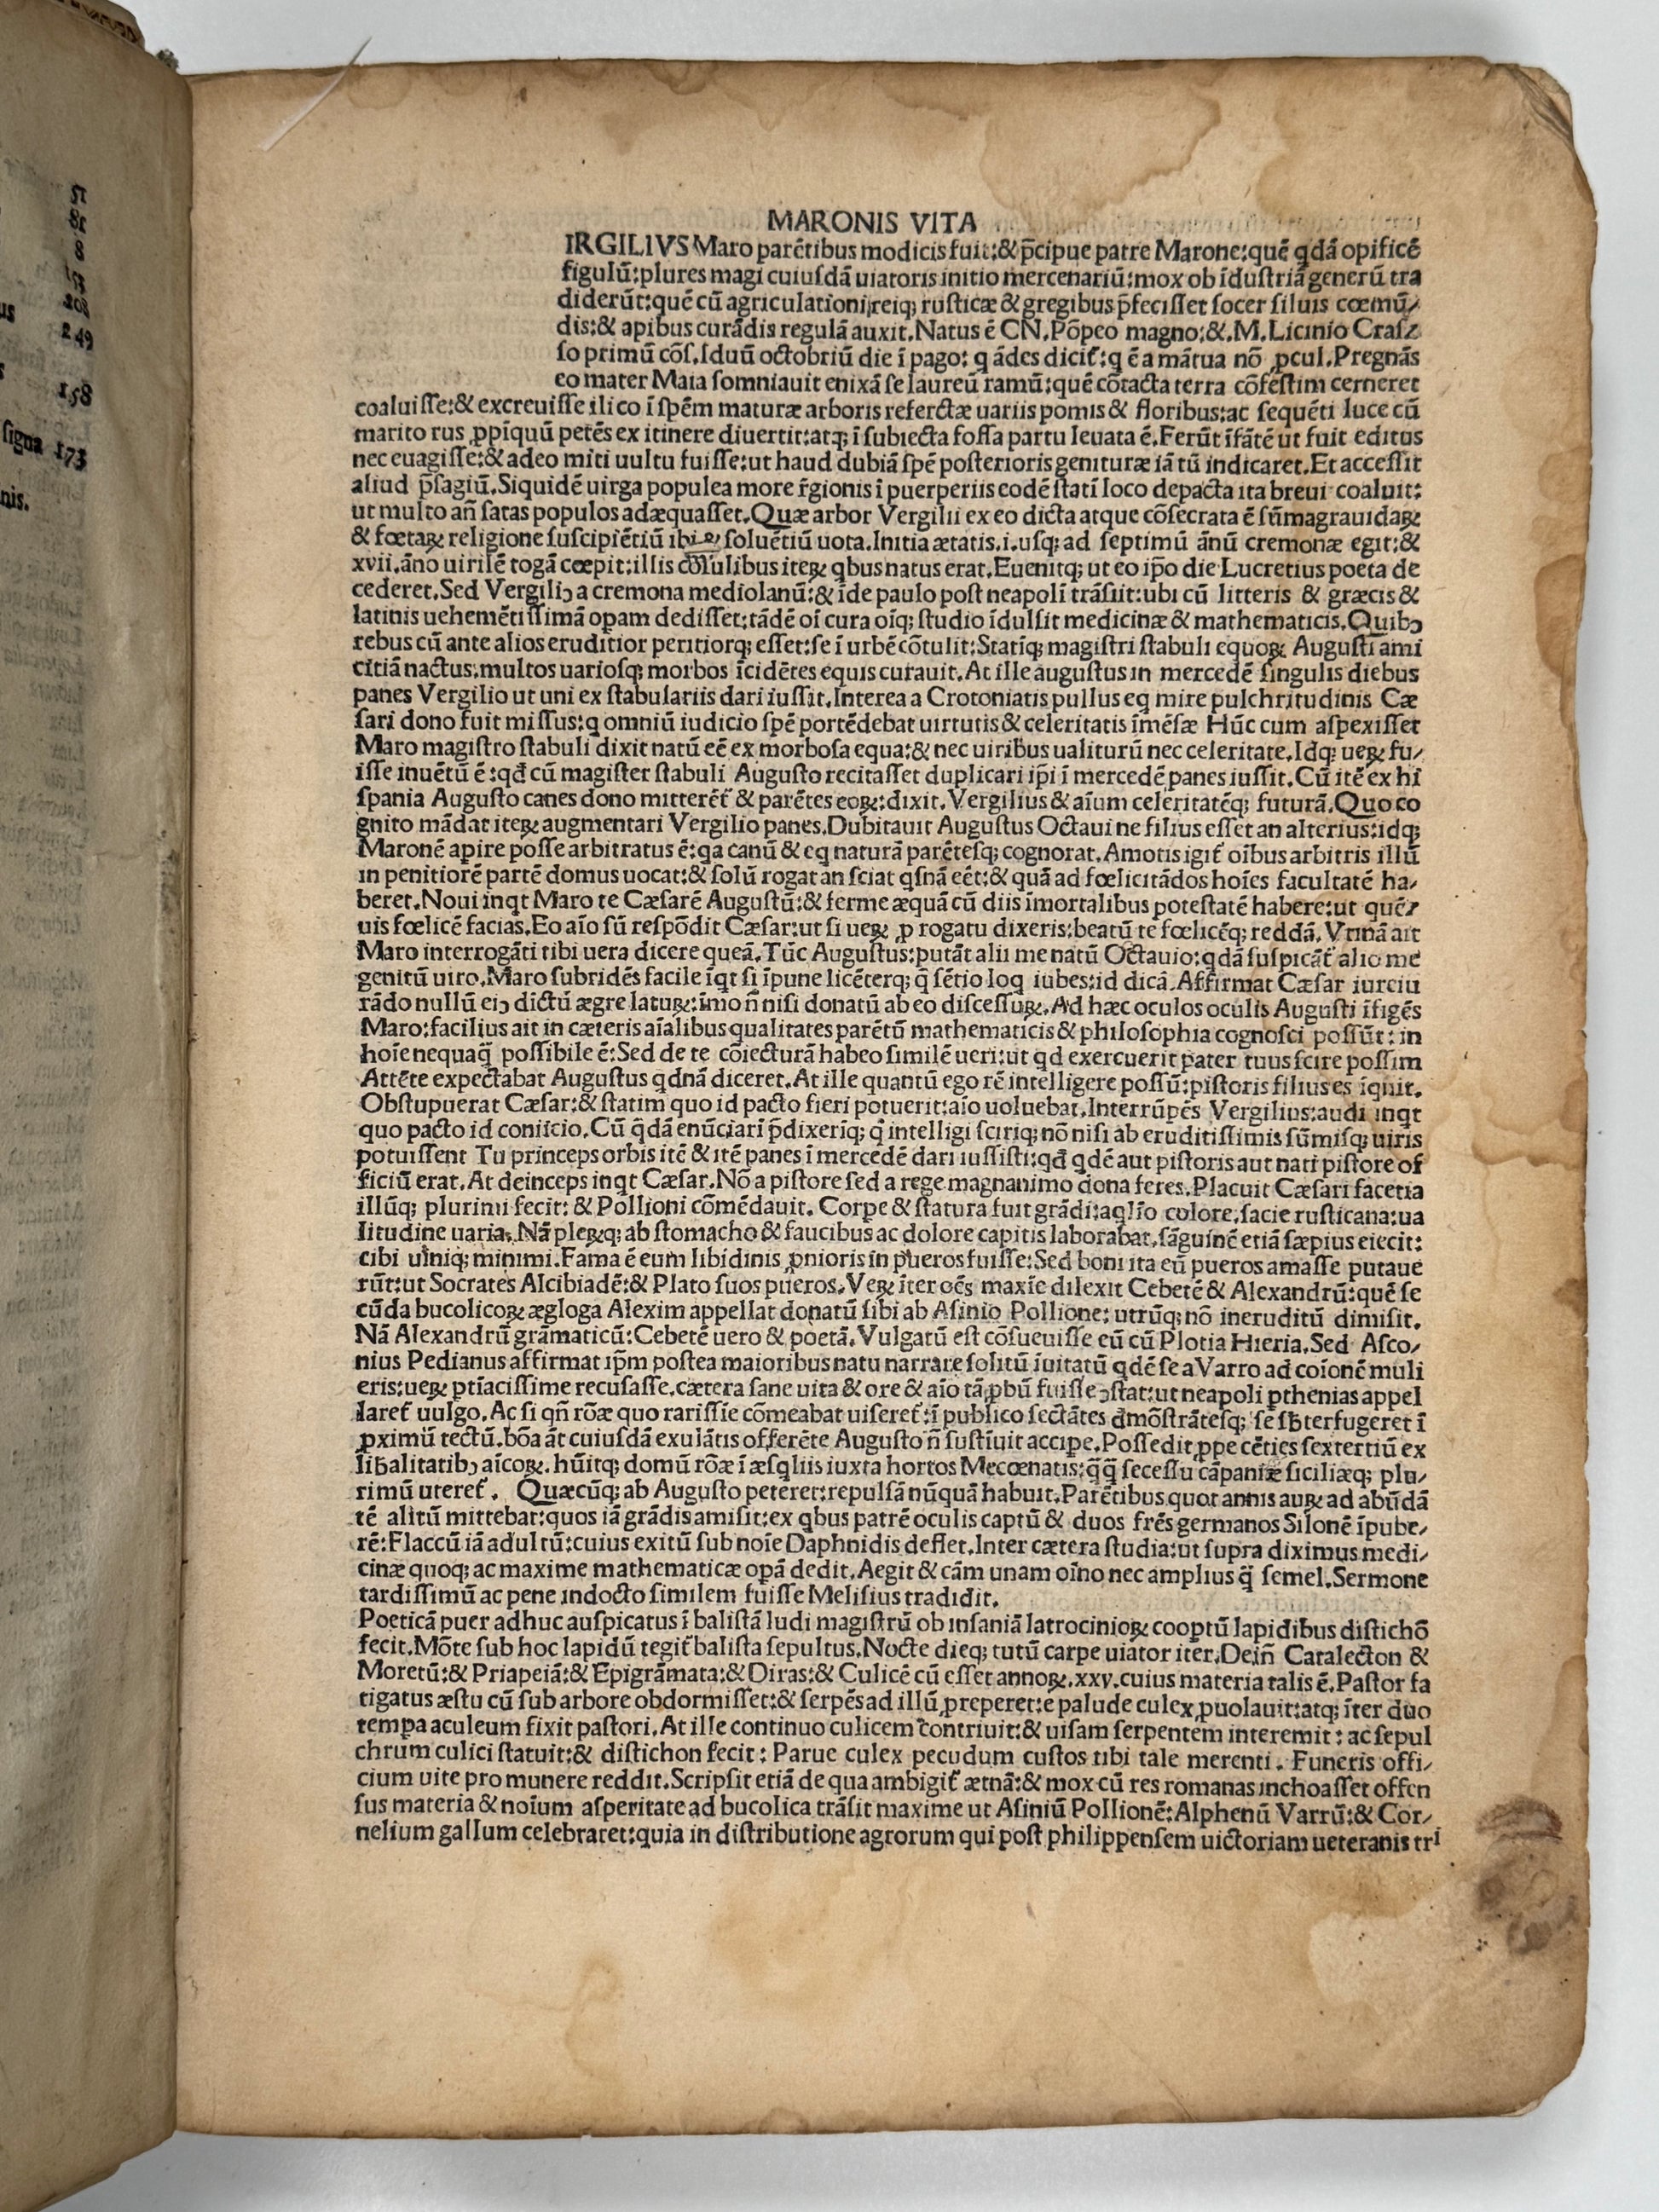 51
81
8
153
208
us
249
s
158
signa 173
nis.
MARONIS VITA
IRGILIVS Maro parētibus modicis fuit:& p̄cipue patre Marone:quē q̄dā opificē
figulū:plures magi cuiuſdā uiatoris initio mercenariū:mox ob īduſtriā generū tra
diderūt:quē cū agriculationi,reiq; ruſticæ & gregibus p̄feciſſet ſocer ſiluis coemū⸗
dis:& apibus curādis regulā auxit.Natus ē CN.Pōpeo magno:&.M.Licinio Craſ⸗
ſo primū cōſ.Iduū octobriū die ī pago: q ādes dicit᷑:q ē a mātua nō ꝓcul.Pregnās
eo mater Maia ſomniauit enixā ſe laureū ramū:quē cōtacta terra cōfeſtim cerneret
coaluiſſe:& excreuiſſe ilico ī ſpēm maturæ arboris refertæ uariis pomis & floribus:ac ſequēti luce cū
marito rus ꝓpīquū petēs ex itinere diuertit:atq; ī ſubiecta foſſa partu leuata ē.Ferūt īfātē ut fuit editus
nec euagiſſe:& adeo miti uultu fuiſſe:ut haud dubiā ſpē poſterioris genituræ iā tū indicaret.Et acceſſit
aliud p̄ſagiū.Siquidē uirga populea more r̄gionis ī puerperiis eodē ſtatī loco depacta ita breui coaluit:
ut multo an̄ ſatas populos adæquaſſet.Quæ arbor Vergilii ex eo dicta atque cōſecrata ē ſūma grauidaꝝ
& fœtaꝝ religione ſuſcipiētiū ibi & ſoluētiū uota.Initia ætatis.i.uſq; ad ſeptimū ānū cremonæ egit:&
xvii.āno uirilē togā cœpit:illis cōſulibus iteꝝ qbus natus erat.Euenitq; ut eo ip̄o die Lucretius poeta de
cederet.Sed Vergiliꝯ a cremona mediolanū:& īde paulo poſt neapolī trāſiit:ubi cū litteris & græcis &
latinis uehemētiſſimā oꝑam dediſſet:tādē oī cura oīq; ſtudio īdulſit medicinæ & mathematicis.Quibꝯ
rebus cū ante alios eruditior peritiorq; eſſet:ſe ī urbē cōtulit:Statīq; magiſtri ſtabuli equoꝝ Auguſti ami
citiā nactus:multos uarioſq; morbos īcidētes equis curauit.At ille auguſtus in mercedē ſingulis diebus
panes Vergilio ut uni ex ſtabulariis dari iuſſit.Interea a Crotoniatis pullus eq mire pulchritudinis Cæ
ſari dono fuit miſſus:q omniū iudicio ſpē portēdebat uirtutis & celeritatis īmēſæ Hūc cum aſpexiſſet
Maro magiſtro ſtabuli dixit natū eē ex morboſa equa:& nec uiribus ualiturū nec celeritate.Idq; ueꝝ fu⸗
iſſe inuētū ē:qđ cū magiſter ſtabuli Auguſto recitaſſet duplicari ip̄i ī mercedē panes iuſſit.Cū itē ex hi
ſpania Auguſto canes dono mitterēt᷑ & parētes eoꝝ:dixit.Vergilius & aīum celeritatēq; futurā.Quo co
gnito mādat iteꝝ augmentari Vergilio panes.Dubitauit Auguſtus Octauine filius eſſet an alterius:idq;
Maronē aꝑire poſſe arbitratus ē:qa canū & eq naturā parēteſq; cognorat.Amotis igit᷑ oībus arbitris illū
in penitiorē partē domus uocat:& ſolū rogat an ſciat qſnā eēt:& quā ad fœlicitādos hoīes facultatē ha⸗
beret.Noui inqt Maro te Cæſarē Auguſtū:& ferme æquā cū diis īmortalibus poteſtatē habere:ut quē⸗
uis fœlicē facias.Eo aīo ſū reſpōdit Cæſar:ut ſi ueꝝ ꝓ rogatu dixeris:beatū te fœlicēq; reddā.Vtinā ait
Maro interrogāti tibi uera dicere queā.Tūc Auguſtus:putāt alii me natū Octauio:qdā ſuſpicāt᷑ alio me
genitū uiro.Maro ſubridēs facile īqt ſi īpune licēterq; q̄ ſētio loq iubes:id dicā.Affirmat Cæſar iureiu
rādo nullū eiꝯ dictū ægre latuꝝ:īmo n̄ niſi donatū ab eo diſceſſuꝝ.Ad hæc oculos oculis Auguſti īfigēs
Maro:facilius ait in cæteris aīalibus qualitates parētū mathematicis & philoſophia cognoſci poſſūt: in
hoīe nequaq̄ poſſibile ē:Sed de te cōiecturā habeo ſimilē ueri:ut qd exercuerit pater tuus ſcire poſſim
Attēte expectabat Auguſtus qdnā diceret.At ille quantū ego rē intelligere poſſū:piſtoris filius es īquit.
Obſtupuerat Cæſar:& ſtatim quo id pacto fieri potuerit:aīo uoluebat.Interrūpēs Vergilius:audi inqt
quo pacto id coniicio.Cū q̄dā enūciarī p̄dixerīq; q̄ intelligi ſcirīq; nō niſi ab eruditiſſimis ſūmiſq; uiris
potuiſſent Tu princeps orbis itē & itē panes ī mercedē dari iuſſiſti:qđ qdē aut piſtoris aut nati piſtore of
ficiū erat.At deinceps inqt Cæſar.Nō a piſtore ſed a rege magnanimo dona feres.Placuit Cæſari facetia
illūq; plurimi fecit: & Pollioni cōmēdauit. Corꝑe & ſtatura fuit grādi:aqlīo colore,facie ruſticana:ua
litudine uaria.Nā pleꝝq; ab ſtomacho & faucibus ac dolore capitis laborabat.ſāguinē etiā ſæpius eiecit:
cibi uiniq; minimi.Fama ē eum libidinis ꝓnioris in pueros fuiſſe:Sed boni ita eū pueros amaſſe putaue
rūt:ut Socrates Alcibiadē:& Plato ſuos pueros.Veꝝ īter oēs maxīe dilexit Cebetē & Alexandrū:quē ſe
cūda bucolicoꝝ ægloga Alexim appellat donatū ſibi ab Aſinio Pollione: utrūq; nō ineruditū dimiſit.
Nā Alexandrū grāmaticū:Cebetē uero & poetā.Vulgatū eſt cōſueuiſſe eū cū Plotia Hieria.Sed Aſco⸗
nius Pedianus affirmat ip̄m poſtea maioribus natu narrare ſolitū īuitatū qdē ſe a Varro ad coīonē muli
eris:ueꝝ ꝑtīaciſſime recuſaſſe.cætera ſane uita & ore & aīo tā ꝓbū fuiſſe ꝯſtat:ut neapoli ꝑthenias appel
laret᷑ uulgo.Ac ſi qn̄ rōæ quo rariſſīe cōmeabat uiſeret᷑:ī publico ſectātes đmōſtrāteſq; ſe ſb̄terfugeret ī
ꝓximū tectū.bōa āt cuiuſdā exulātis offerēte Auguſto n̄ ſuſtīuit acciꝑe.Poſſedit ꝓpe cēties ſextertiū ex
lib̄alitatibꝯ aīcoꝝ.hūitq; domū rōæ ī æſqliis iuxta hortos Mecœnatis:q̄q̄ ſeceſſu cāpaniæ ſiciliæq; plu⸗
rimū uteret᷑. Quæcūq; ab Auguſto peteret:repulſā nūquā habuit.Parētibus quot annis auꝝ ad abūdā
tē alitū mittebat:quos iā grādis amiſit:ex qbus patrē oculis captū & duos fr̄es germanos Silonē īpube⸗
rē:Flaccū iā adultū:cuius exitū ſub noīe Daphnidis deflet.Inter cætera ſtudia:ut ſupra diximus medi⸗
cinæ quoq; ac maxime mathematicæ oꝑā dedit.Aegit & cām unam oīno nec amplius q̄ ſemel.Sermone
tardiſſimū ac pene indocto ſimilem fuiſſe Meliſius tradidit.
Poeticā puer adhuc auſpicatus ī baliſtā ludi magiſtrū ob inſaniā latrocinioꝝ cooꝑtū lapidibus diſtichō
fecit.Mōte ſub hoc lapidū tegit᷑ baliſta ſepultus.Nocte dieq; tutū carpe uiator iter.Dein̄ Catalecton &
Moretū:& Priapeiā:& Epigrāmata:& Diras:& Culicē cū eſſet annoꝝ.xxv.cuius materia talis ē.Paſtor fa
tigatus æſtu cū ſub arbore obdormiſſet:& ſerpēs ad illū ꝓreperet:e palude culex ꝓuolauit:atq; īter duo
tempa aculeum fixit paſtori.At ille continuo culicem contriuit:& uiſam ſerpentem interemit: ac ſepul
chrum culici ſtatuit:& diſtichon fecit: Parue culex pecudum cuſtos tibi tale merenti. Funeris offi⸗
cium uite pro munere reddit.Scripſit etiā de qua ambigit᷑ ætnā:& mox cū res romanas inchoaſſet offen
ſus materia & noīum aſperitate ad bucolica trāſit maxime ut Aſiniū Pollionē:Alphenū Varrū:& Cor⸗
nelium gallum celebraret:quia in diſtributione agrorum qui poſt philippenſem uictoriam ueteranis tri